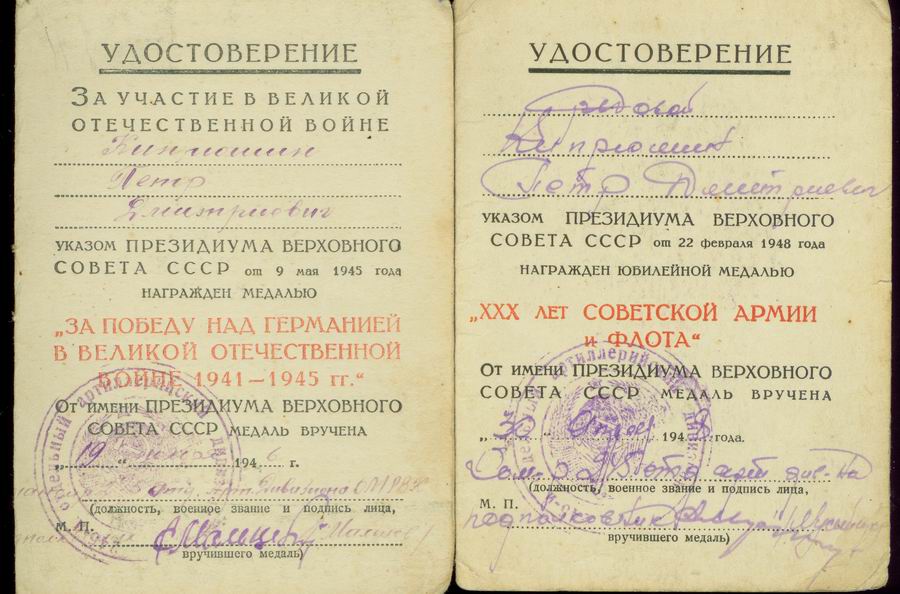 УДОСТОВЕРЕНИЕ
ЗА УЧАСТИЕ В ВЕЛИКОЙ
ОТЕЧЕСТВЕННОЙ ВОЙНЕ
Петр
Дмитриович
УКАЗОМ ПРЕЗИДИУМА ВЕРХОВНОГО
СОВЕТА СССР от 9 мая 1945 года
НАГРАЖДЕН МЕДАЛЬЮ
„ЗА ПОБЕДУ НАД ГЕРМАНИЕЙ
В ВЕЛИКОЙ ОТЕЧЕСТВЕННОЙ
ВОЙНЕ 1941—1945 гг.“
От имени ПРЕЗИДИУМА ВЕРХОВНОГО
СОВЕТА СССР МЕДАЛЬ ВРУЧЕНА
„19“ 1946 г.
(должность, военное звание и подпись лица,
М. П.
вручившего медаль)
УДОСТОВЕРЕНИЕ
Рядовой
Петр Дмитриевич
УКАЗОМ ПРЕЗИДИУМА ВЕРХОВНОГО
СОВЕТА СССР от 22 февраля 1948 года
НАГРАЖДЕН ЮБИЛЕЙНОЙ МЕДАЛЬЮ
„XXX ЛЕТ СОВЕТСКОЙ АРМИИ
и ФЛОТА“
От имени ПРЕЗИДИУМА ВЕРХОВНОГО
СОВЕТА СССР МЕДАЛЬ ВРУЧЕНА
„30 194 года.
(должность, военное звание и подпись лица,
М. П.
подполковник
вручившего медаль)